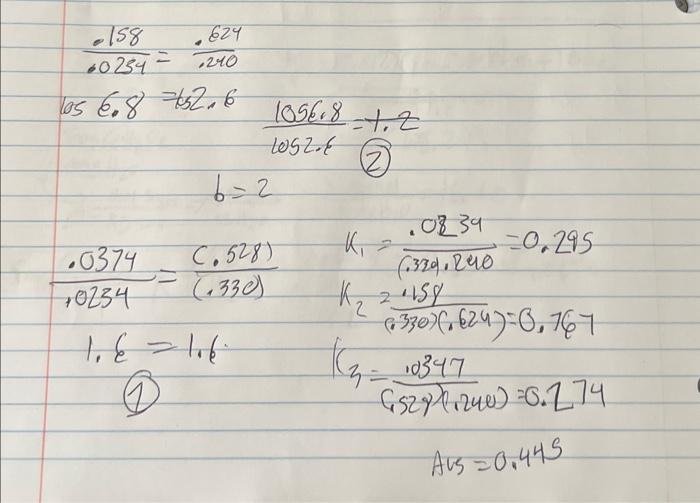 .158 / .0234 = .624 / .240
log 6.8 = log 2.6
log 6.8 / log 2.6 = 1.2
②
b = 2
.0374 / .0234 = (.528) / (.330)
1.6 = 1.6
①
K1 = .0234 / (.330)(.240 = 0.295
K2 = .158 / (.330)(.624) = 0.767
K3 = .0347 / (.528)(.240) = 0.274
Avg = 0.445